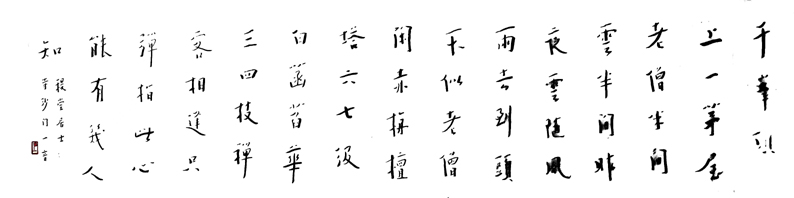 千峯頂
上一茅屋
老僧半間
雲半間昨
夜雲隨風
雨去到頭
不似老僧
閒赤栴檀
塔六七級
白菡萏華
三四枝禪
客相逢只
彈指此心
能有幾人
知